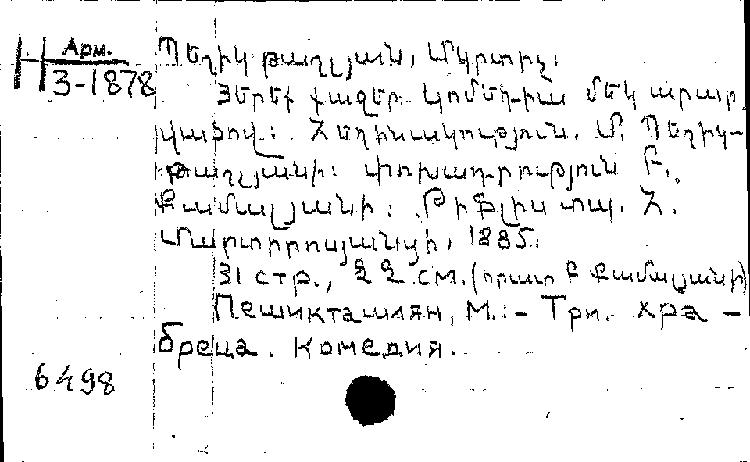 Арм.
3-1878
Պեշիկթաշլյան, Մկրտիչ.
Յերեք քաջեր. կոմեդիա մեկ արար-
վածով: Հեղինակություն. Մ. Պեշիկ-
թաշլյանի: փոխադրություն Բ.
Քամալյանի: Թիֆլիս տպ. Հ.
Մարտիրոսյանցի, 1885.
31 стр., 22 см. (Քամալյանի)
Пешикташлян, М.:- Три хра-
бреца. Комедия.
6498